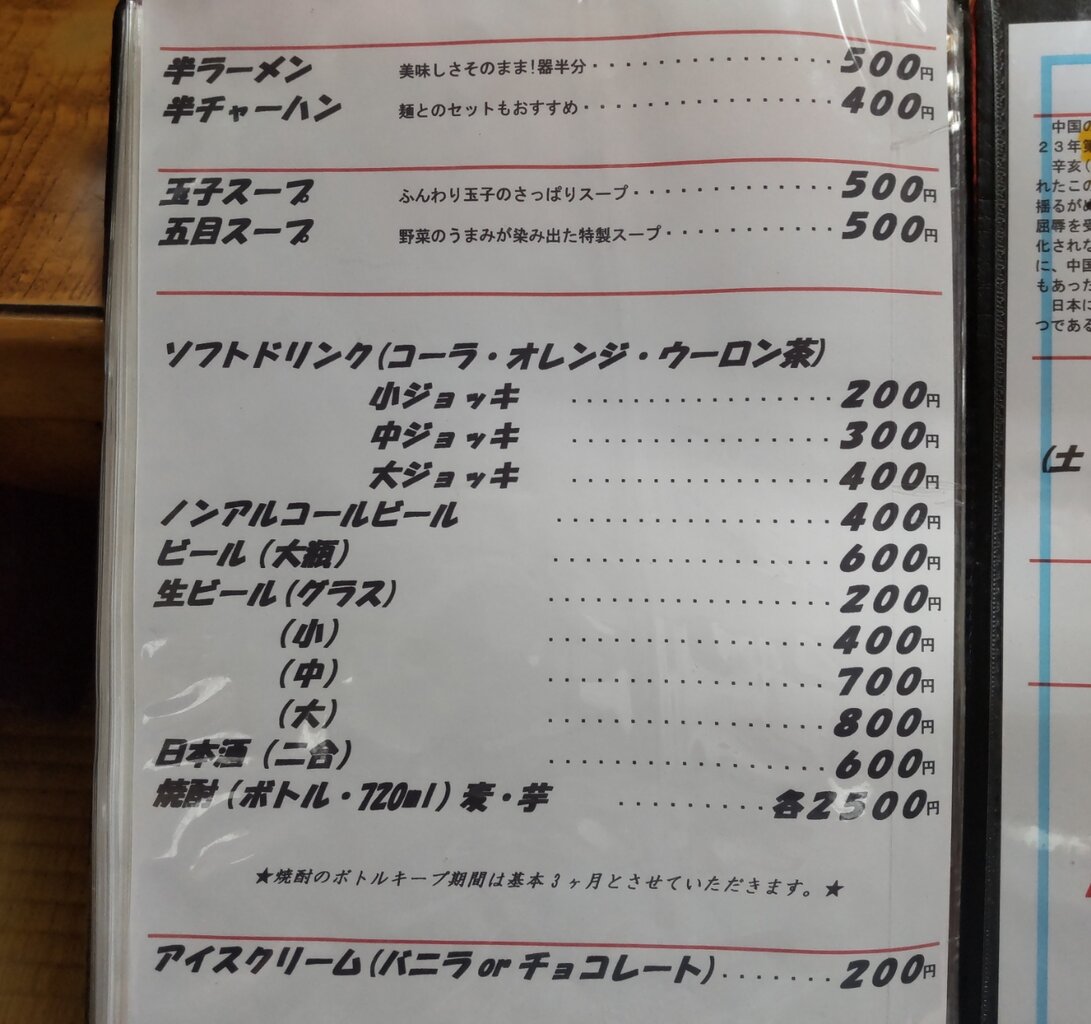 半ラーメン 美味しさそのまま!器半分 500円
半チャーハン 麺とのセットもおすすめ 400円
玉子スープ ふんわり玉子のさっぱりスープ 500円
五目スープ 野菜のうまみが染み出た特製スープ 500円
ソフトドリンク(コーラ・オレンジ・ウーロン茶)
小ジョッキ 200円
中ジョッキ 300円
大ジョッキ 400円
ノンアルコールビール 400円
ビール(大瓶) 600円
生ビール(グラス) 200円
(小) 400円
(中) 700円
(大) 800円
日本酒(二合) 600円
焼酎(ボトル・720ml)麦・芋 各2500円
★焼酎のボトルキープ期間は基本3ヶ月とさせていただきます。★
アイスクリーム(バニラorチョコレート) 200円
中国の
23年
辛亥(
れたこの
揺るがぬ
屈辱を受
化されな
に、中国
もあった
日本に
つである
(土